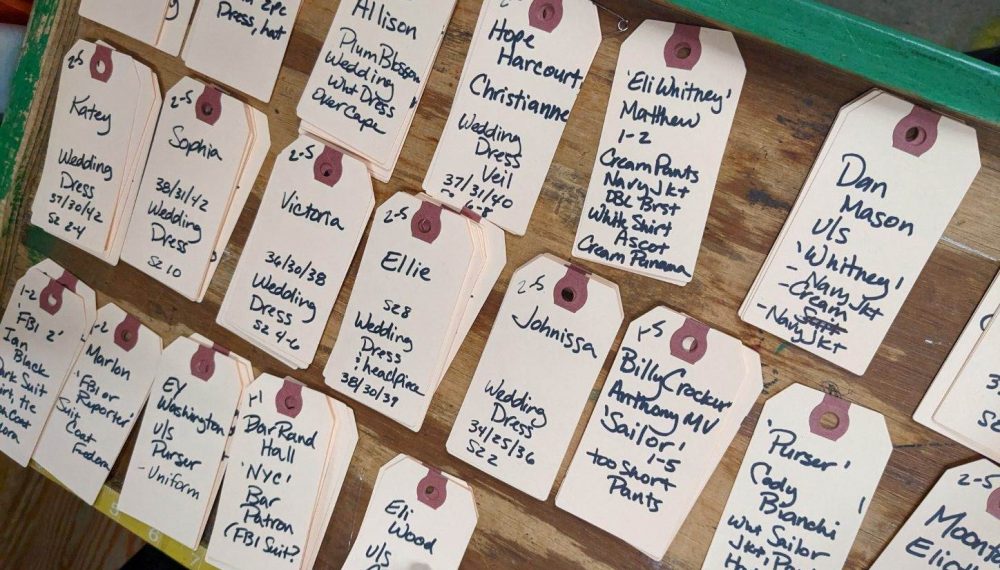 2pc
Dress, hat
Allison
Plum Blossom
Wedding
Wht Dress
Over Cape
2-5
Hope
Harcourt
Christianne
Wedding
Dress
Veil
37/31/40
6-8
'Eli Whitney'
Matthew
1-2
Cream Pants
Navy Jkt
DBL Brst
White Shirt
Ascot
Cream Panama
Dan
Mason
U/S
'Whitney'
- Navy Jkt
- Cream
- Navy Jkt
2-5
Katey
Wedding
Dress
37/30/42
SZ 2-4
2-5
Sophia
38/31/42
Wedding
Dress
SZ 10
2-5
Victoria
36/30/38
Wedding
Dress
SZ 4-6
2-5
Ellie
SZ 8
Wedding
Dress
: headpiece
38/30/39
2-5
Johnissa
Wedding
Dress
34/25/36
SZ 2
1-5
Billy Crocker
Anthony MV
'Sailor'
1-5
too short
Pants
'Purser'
Cody
Bianchi
Wht Sailor
1-2
'FBI 2'
Ian
Black
Dark Suit
tie
Marlon
'FBI or
Reporter'
Suit
Coat
Fedora
EY
Washington
U/S
Purser
- Uniform
BarRand
Hall
'NYC'
Bar
Patron
(FBI Suit?
Eli
Wood
U/S
2-5